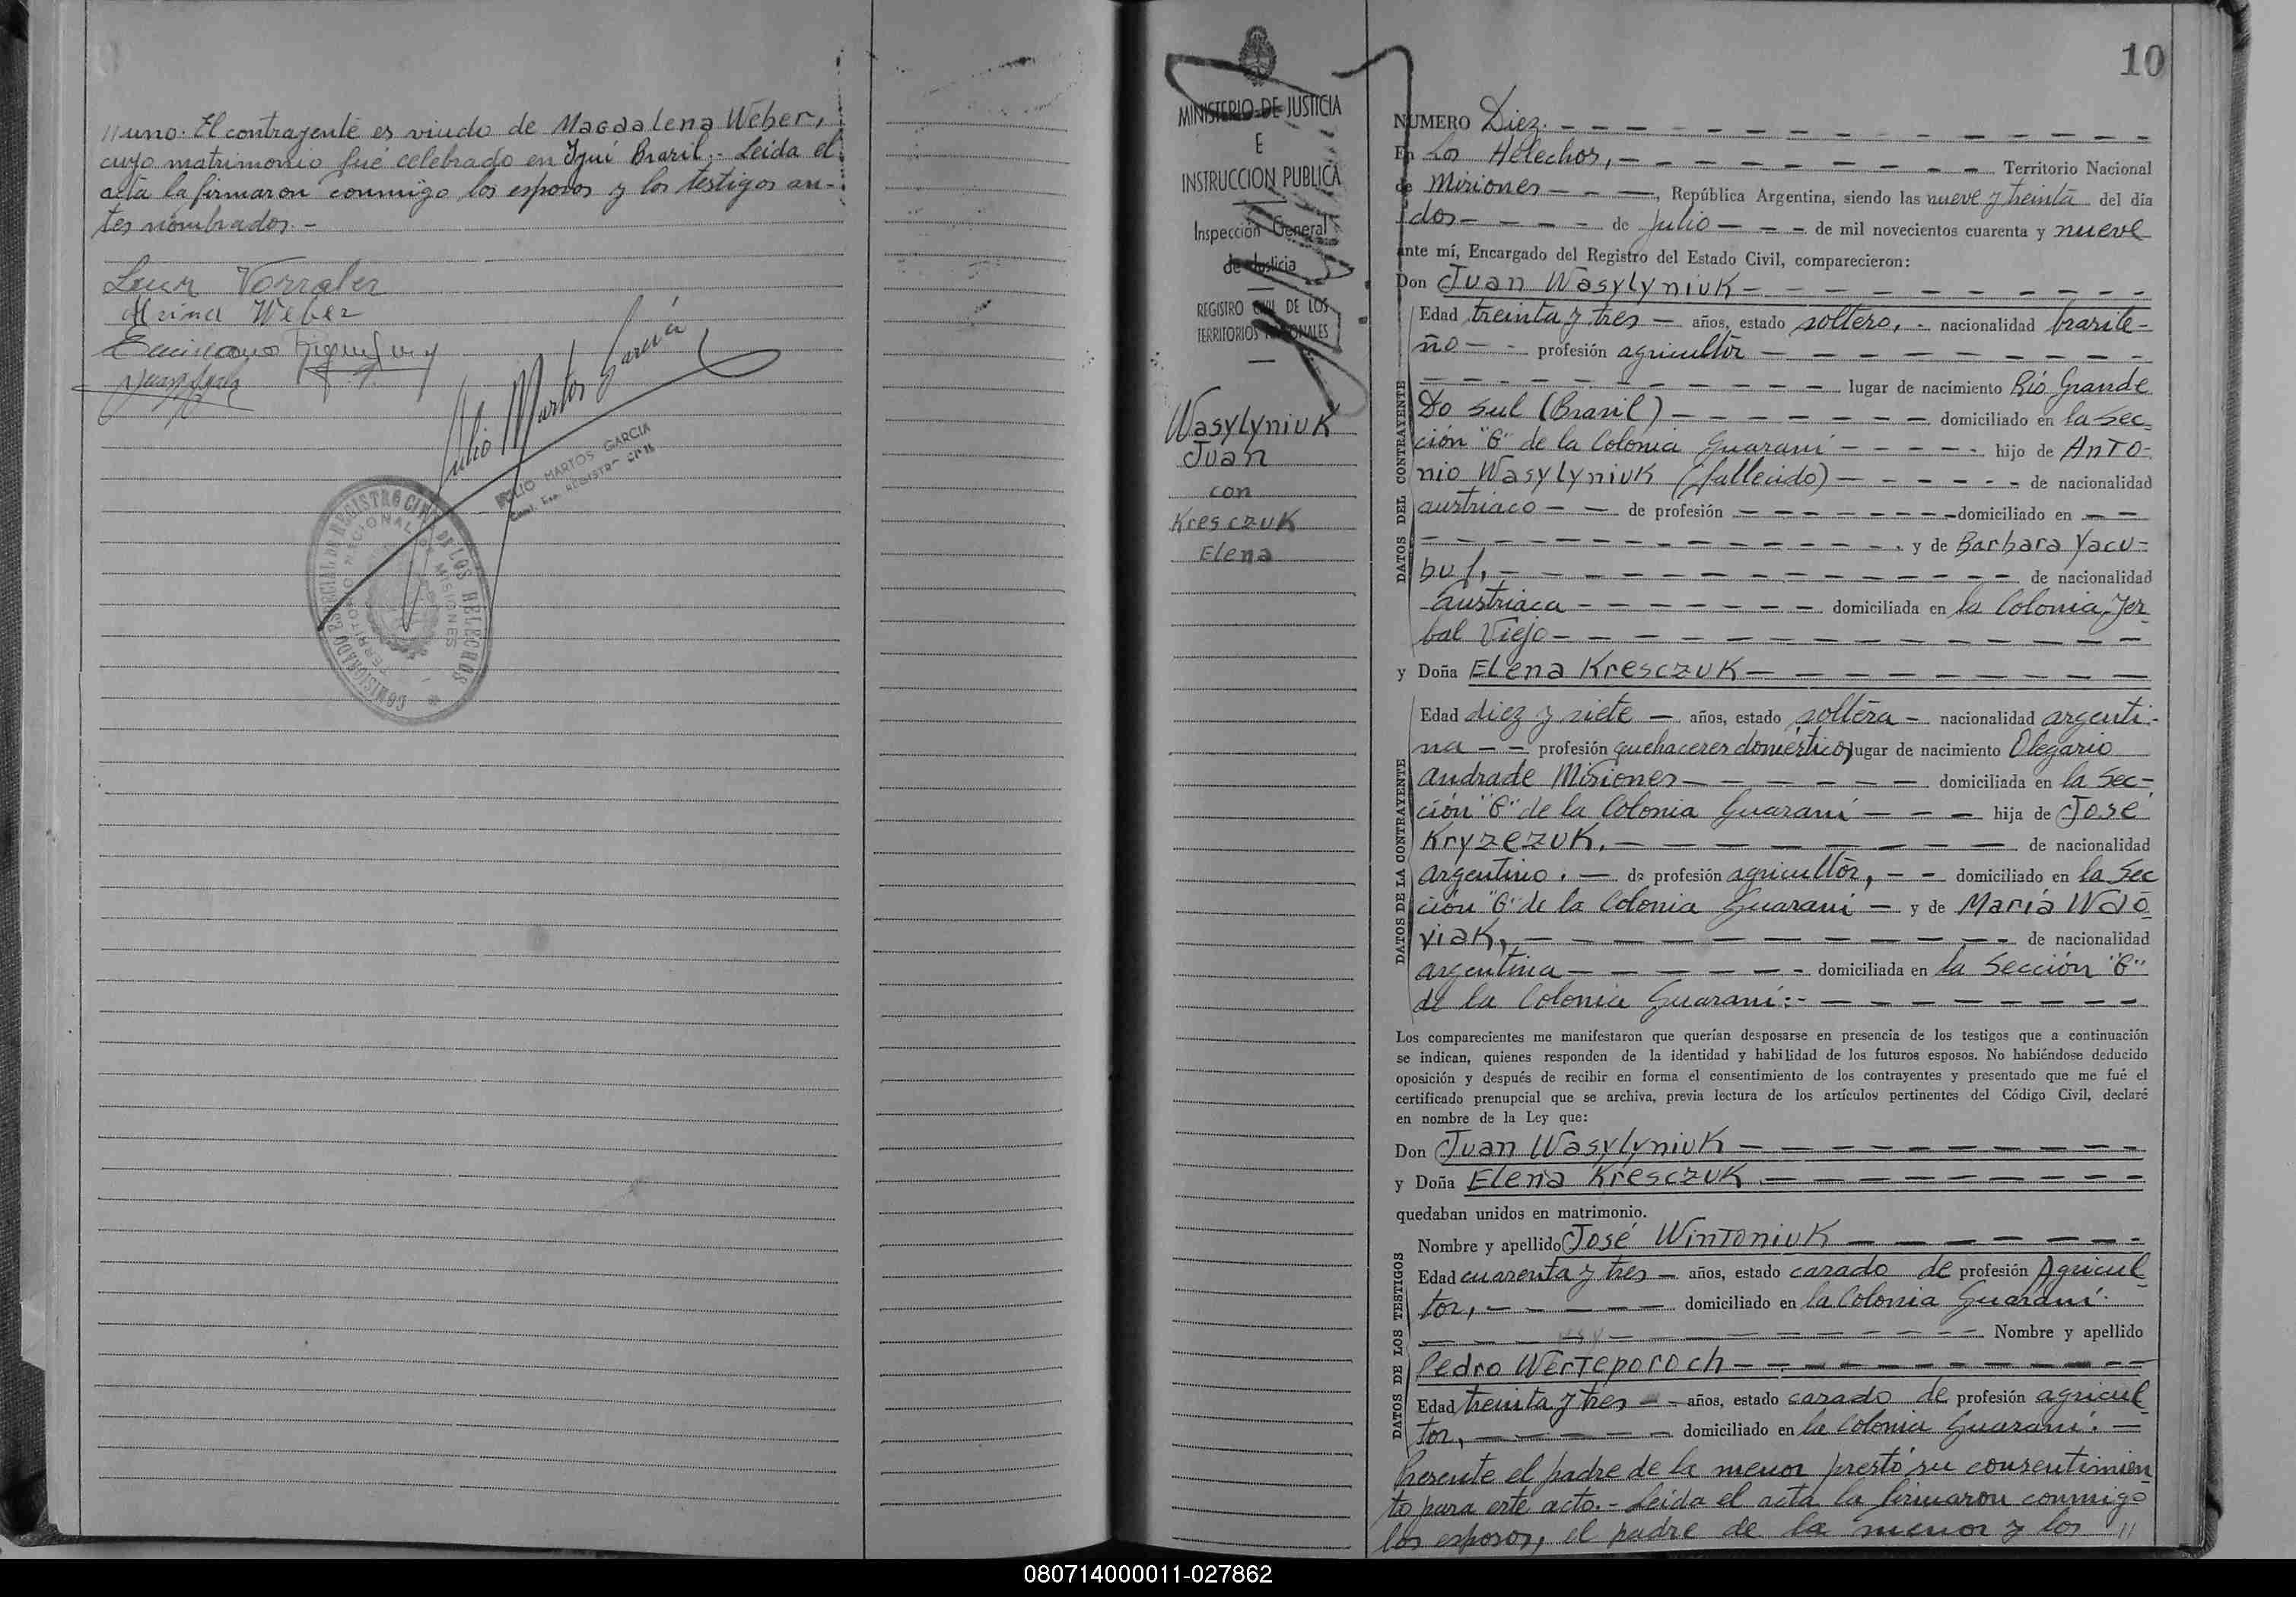 //uno. El contrayente es viudo de Magdalena Weber,
cuyo matrimonio fué celebrado en Ijui Brasil.- Leida el
acta la firmaron conmigo los esposos y los testigos an-
tes nombrados.-
Weber
Julio Martos Garcia
JULIO MARTOS GARCIA
REGISTRO CIVIL
COMISIONADO ESPECIAL DE REGISTRO CIVIL DE LOS HELECHOS
TERRITORIO NACIONAL DE MISIONES
MINISTERIO DE JUSTICIA
E
INSTRUCCION PUBLICA
Inspección General
de Justicia
REGISTRO CIVIL DE LOS
TERRITORIOS NACIONALES
Wasylyniuk
Juan
con
Kresczuk
Elena
10
NUMERO Diez.
En Los Helechos, Territorio Nacional
de Misiones, República Argentina, siendo las nueve y treinta del día
dos de Julio de mil novecientos cuarenta y nueve
ante mí, Encargado del Registro del Estado Civil, comparecieron:
Don Juan Wasylyniuk
DATOS DEL CONTRAYENTE
Edad treinta y tres años, estado soltero, nacionalidad brasile-
ño profesión agricultor
lugar de nacimiento Rio Grande
Do Sul (Brasil) domiciliado en la Sec-
ción "G" de la Colonia Guaraní hijo de Anto-
nio Wasylyniuk (fallecido) de nacionalidad
austriaco de profesión domiciliado en
y de Barbara Yacu-
buf, de nacionalidad
austriaca domiciliada en la Colonia Yer
bal Viejo
y Doña Elena Kresczuk
DATOS DE LA CONTRAYENTE
Edad diez y siete años, estado soltera nacionalidad argenti-
na profesión quehaceres domésticos, lugar de nacimiento Olegario
Andrade Misiones domiciliada en la Sec-
ción "G" de la Colonia Guaraní hija de José
Kryzezuk. de nacionalidad
argentino. de profesión agricultor, domiciliado en la Sec
ción "G" de la Colonia Guaraní y de María Wdo-
viak, de nacionalidad
argentina domiciliada en la Sección "G"
de la Colonia Guaraní.-
Los comparecientes me manifestaron que querían desposarse en presencia de los testigos que a continuación
se indican, quienes responden de la identidad y habilidad de los futuros esposos. No habiéndose deducido
oposición y después de recibir en forma el consentimiento de los contrayentes y presentado que me fué el
certificado prenupcial que se archiva, previa lectura de los artículos pertinentes del Código Civil, declaré
en nombre de la Ley que:
Don Juan Wasylyniuk
y Doña Elena Kresczuk
quedaban unidos en matrimonio.
DATOS DE LOS TESTIGOS
Nombre y apellido José Wintoniuk
Edad cuarenta y tres años, estado casado de profesión Agricul
tor, domiciliado en la Colonia Guaraní.
Nombre y apellido
Pedro Werteporoch
Edad treinta y tres años, estado casado de profesión agricul
tor, domiciliado en la Colonia Guaraní.
Presente el padre de la menor prestó su consentimien
to para este acto.- Leida el acta la firmaron conmigo
los esposos, el padre de la menor y los //
080714000011-027862